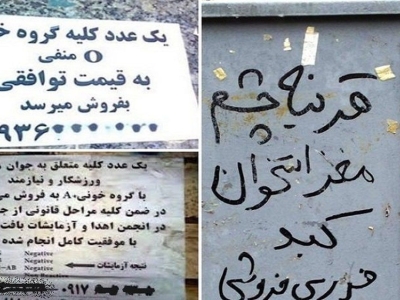 یک عدد کلیه گروه
منفی O
به قیمت توافقی
بفروش میرسد
936
یک عدد کلیه متعلق به جوان
ورزشکار و نیازمند
با گروه خونی،A به فروش می
در ضمن کلیه مراحل قانونی از
در انجمن اهدا و آزمایشات بافت
با موفقیت کامل انجام شده
Negative
نتیجه آزمایشات Negative
-AB Negative
0917
قرنیه چشم
مغز استخوان
کبد
فروشی